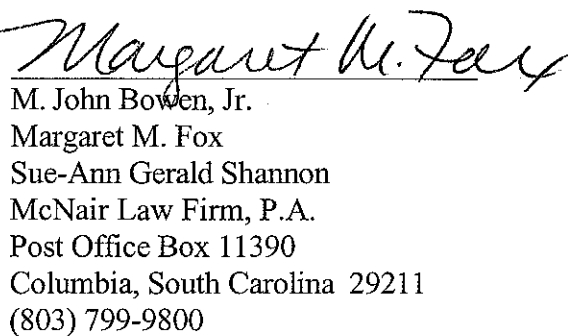 Margaret M. Fox
M. John Bowen, Jr.
Margaret M. Fox
Sue-Ann Gerald Shannon
McNair Law Firm, P.A.
Post Office Box 11390
Columbia, South Carolina  29211
(803) 799-9800